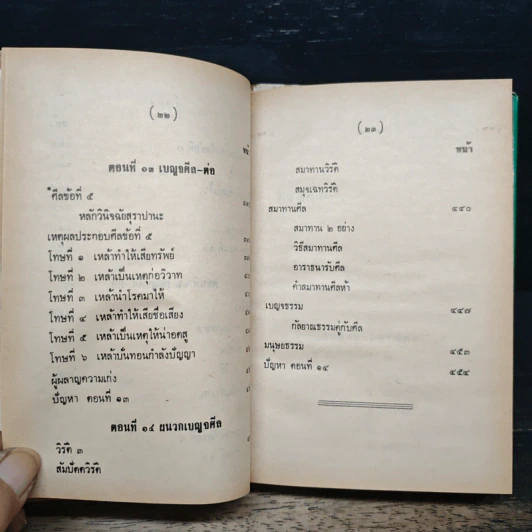 (๒๒)
ตอนที่ ๑๓ เบญจศีล-ต่อ
ศีลข้อที่ ๕
หลักวินิจฉัยสุราปานะ
เหตุผลประกอบศีลข้อที่ ๕
โทษที่ ๑ เหล้าทำให้เสียทรัพย์
โทษที่ ๒ เหล้าเป็นเหตุก่อวิวาท
โทษที่ ๓ เหล้านำโรคมาให้
โทษที่ ๔ เหล้าทำให้เสียชื่อเสียง
โทษที่ ๕ เหล้าเป็นเหตุให้น่าอดสู
โทษที่ ๖ เหล้าบั่นทอนกำลังปัญญา
ผู้ผลาญความเก่ง
ปัญหา ตอนที่ ๑๓
ตอนที่ ๑๔ ผนวกเบญจศีล
วิรัติ ๓
สัมปัตตวิรัติ
(๒๓)
หน้า
สมาทานวิรัติ
สมุจเฉทวิรัติ
สมาทานศีล ๔๔๐
สมาทาน ๒ อย่าง
วิธีสมาทานศีล
อาราธนารับศีล
คำสมาทานศีลห้า
เบญจธรรม ๔๔๗
กัลยาณธรรมคู่กับศีล
มนุษยธรรม ๔๕๓
ปัญหา ตอนที่ ๑๔ ๔๕๔